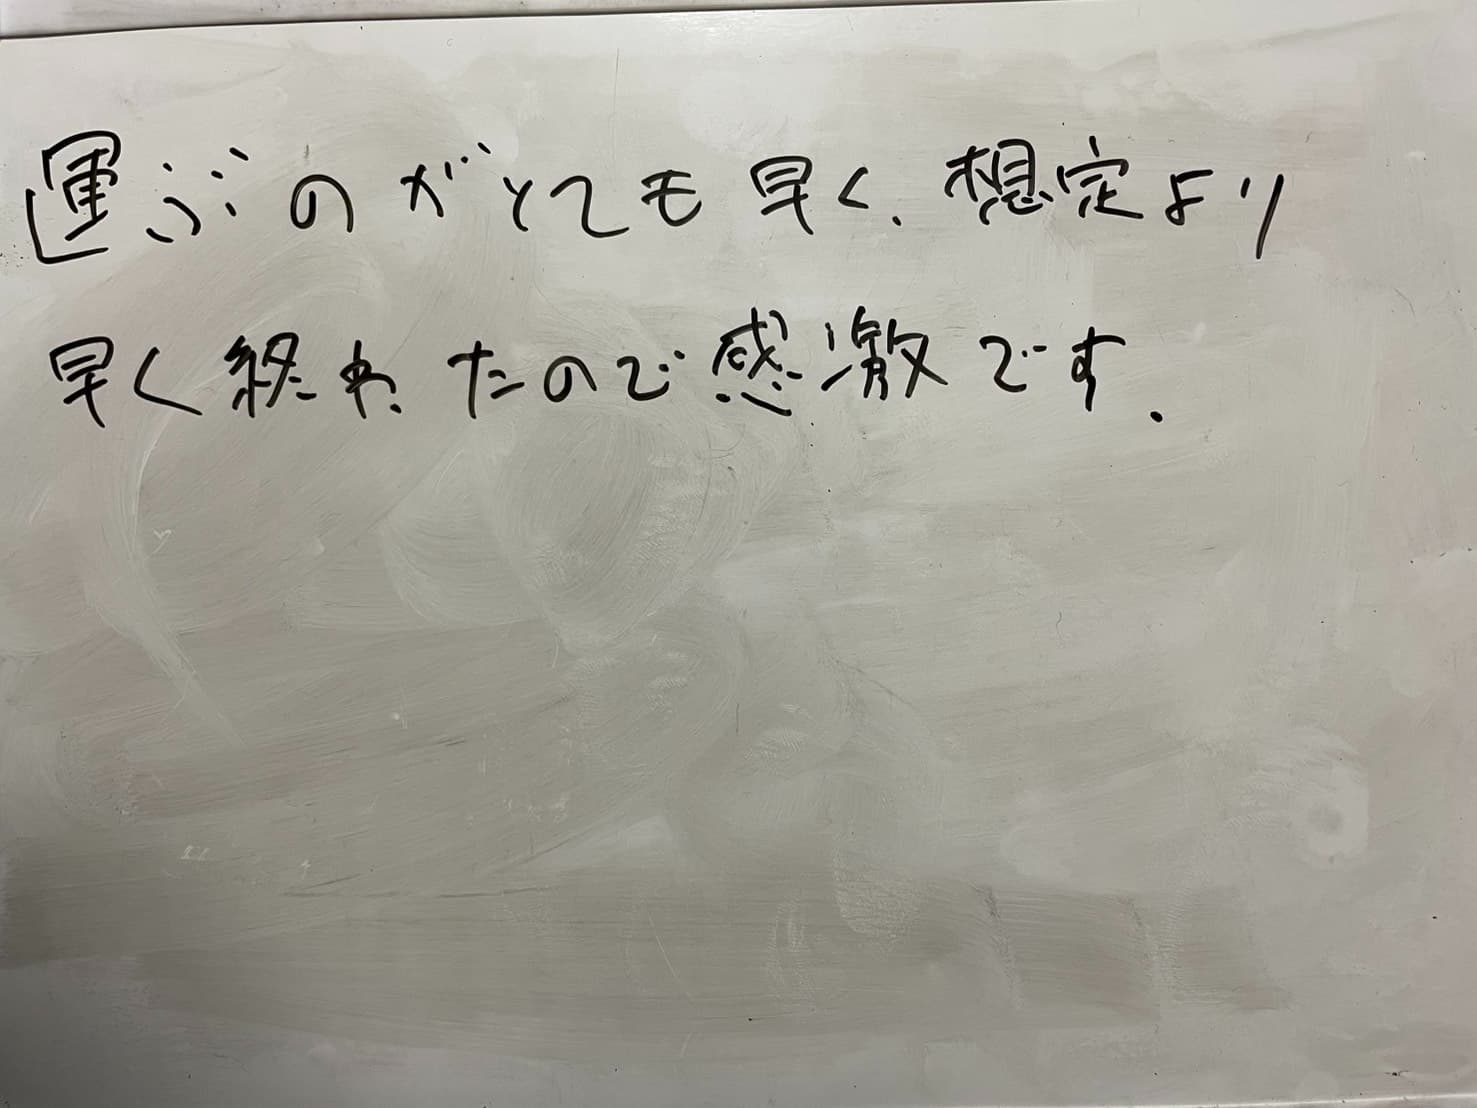 運ぶのがとても早く、想定より
早く終わったので感激です.